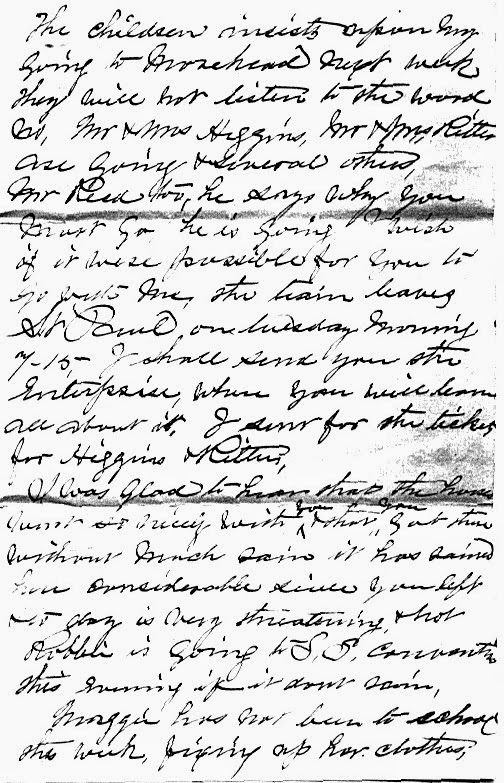 The children insists upon my
going to Morehead next week
they will not listen to the word
no, Mr & Mrs Higgins, Mr & Mrs Ritter
are going & several others,
Mr Reed too, he says why you
must go he is going I wish
if it were possible for you to
go with me, the train leaves
St Paul, on tuesday morning
7-15, I shall send you the
Enterprise, where you will learn
all about it, I sent for the ticket
for Higgins & Ritter,
I was glad to hear that the horse
went so nicely with you, & that you got thru
without much rain it has rained
here considerable since you left
& to day is very threatening, & hot
Robbie is going to S, S, convention
this evening if it dont rain,
Maggie has not been to school
this week, fixing up her clothes,